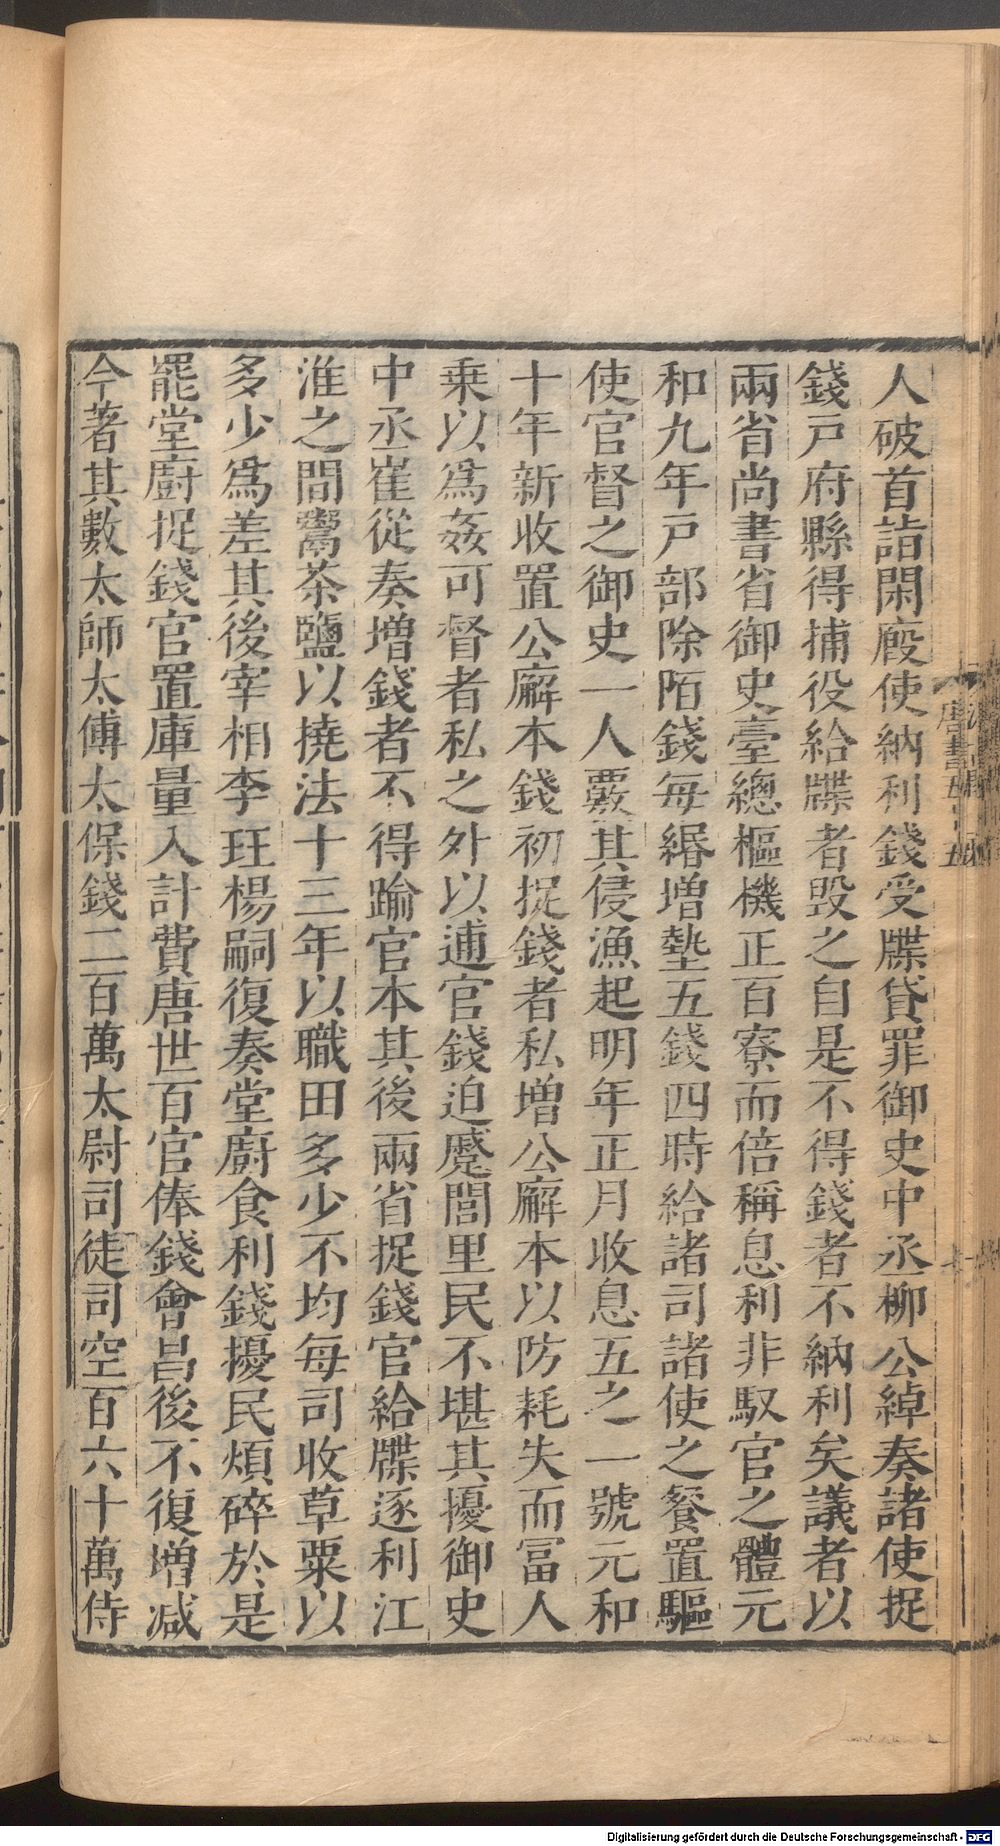 人破首詣閑廄使納利錢受牒貸罪御史中丞柳公綽奏諸使捉
錢戸府縣得捕役給牒者毀之自是不得錢者不納利矣議者以
兩省尚書省御史臺總樞機正百寮而倍稱息利非馭官之體元
和九年戸部除陌錢每緡增墊五錢四時給諸司諸使之餐置驅
使官督之御史一人覈其侵漁起明年正月收息五之一號元和
十年新收置公廨本錢初捉錢者私增公廨本以防耗失而冨人
乗以爲姦可督者私之外以逋官錢迫蹙閭里民不堪其擾御史
中丞崔從奏增錢者不得踰官本其後兩省捉錢官給牒逐利江
淮之間鬻茶鹽以撓法十三年以職田多少不均每司收草粟以
多少爲差其後宰相李玨楊嗣復奏堂廚食利錢擾民煩碎於是
罷堂廚捉錢官置庫量入計費唐世百官俸錢會昌後不復增减
今著其數太師太傅太保錢二百萬太尉司徒司空百六十萬侍
唐書五十五
Digitalisierung gefördert durch die Deutsche Forschungsgemeinschaft - DFG